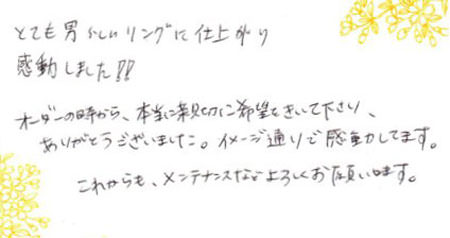 とても男らしいリングに仕上がり
感動しました!!
オーダーの時から、本当に親切に希望をきいて下さり、
ありがとうございました。イメージ通りで感動してます。
これからも、メンテナンスなどよろしくお願いします。